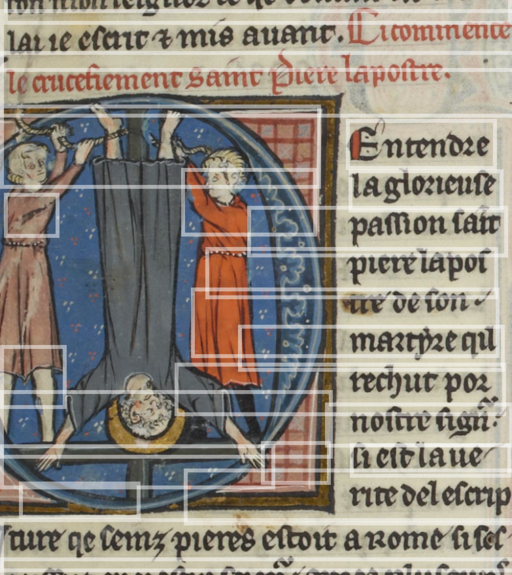 lai ie escrit ⁊ mis auant. Ci commence
le crucefiement saint Piere lapostre.
Entendre
la glorieuse
passion sait
piere lapos
tre de son
martyre qil
rechut por
nostre sign̄.
si est la ue
rite del escrip
ture qe semz pieres estoit a rome si ses